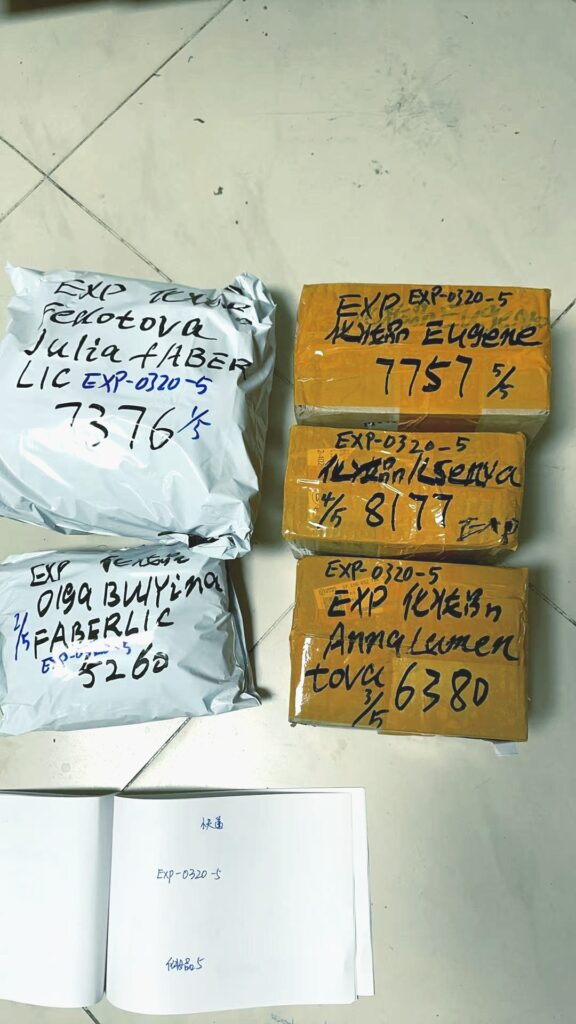 EXP 化妆品
Fedotova
Julia fABER
LIC EXP-0320-5
7376 1/5
EXP EXP-0320-5
化妆品 Eugene
7757 5/5
EXP-0320-5
化妆品 lisenya
4/5 8177 EXP
EXP 化妆品
Olga BulYina
2/5 FABERLIC
EXP-0320-5
5260
EXP-0320-5
EXP 化妆品
Anna lumen
tova 6380
3/5
EXP-0320-5
化妆品 5